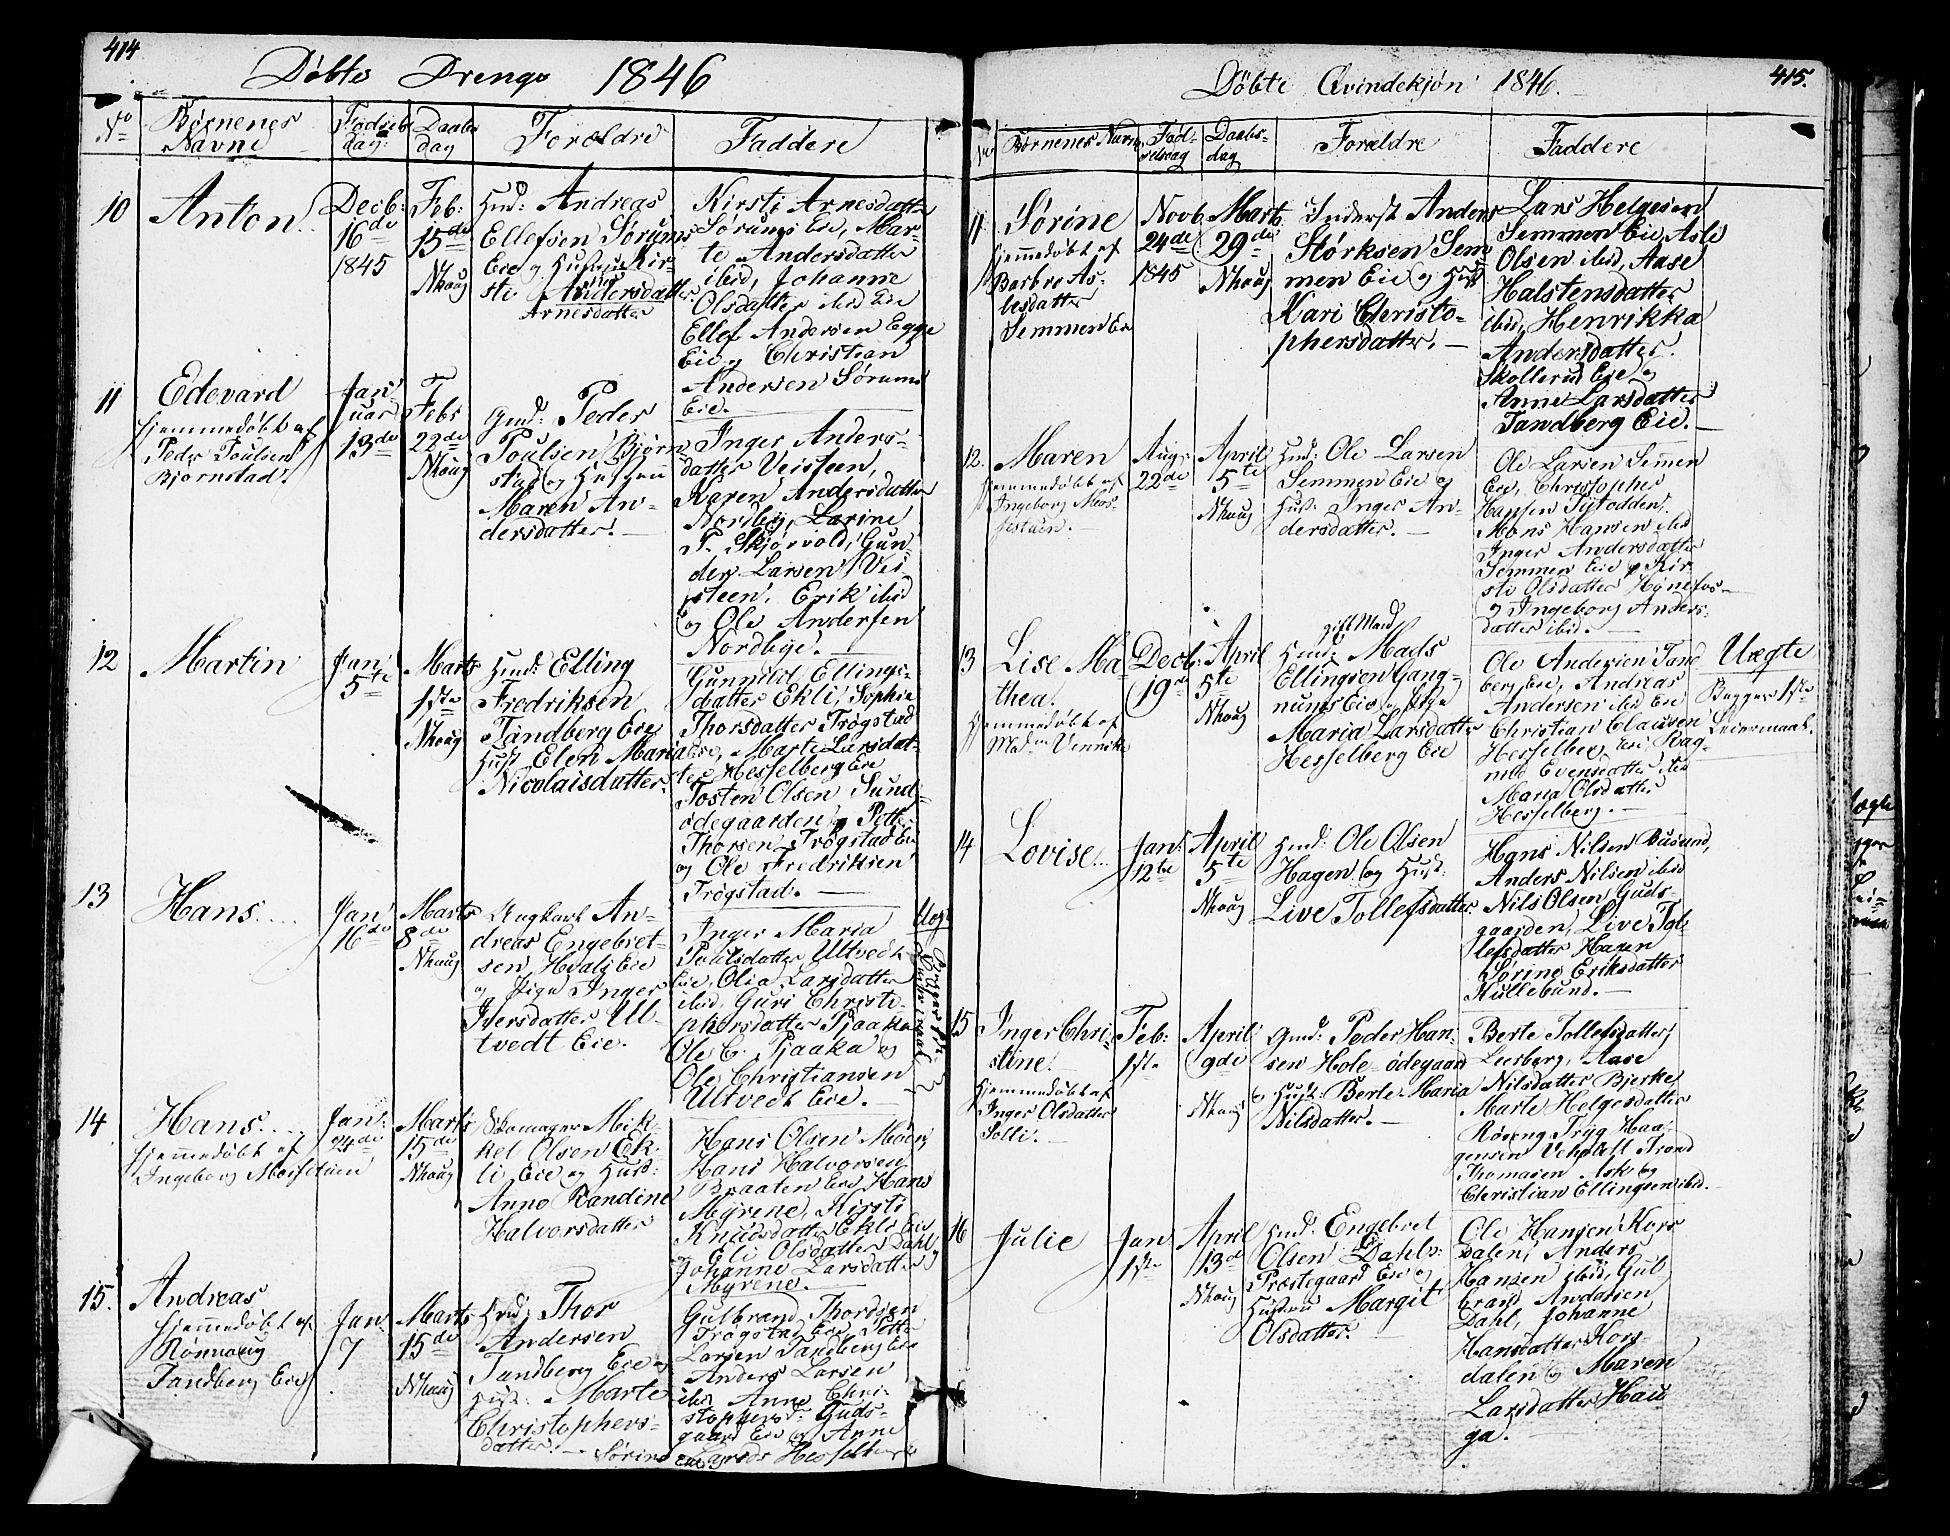 414
Døbte Drenge 1846
No
Børnenes Navne
Fødselsdag
Daabsdag
Forældre
Faddere
10
Anton
Decb:
16de
1845
Feb:
15de
Nhoug
Gmd: Andreas
Ellefsen Sørums
Eie og Hustrue Kir-
sti Andersdatter
Arnesdatter
Kirsti Arnesdatter
Sørums Eie, Mar-
te Andersdatter
ibid, Johanne
Olsdatter ibid Eie
Ellef Andersen Egge
Eie og Christian
Andersen Sørums
Eie.
11
Edevard
hjemmedøbt af
Peder Poulsen
Bjørnstad.
Jan-
uar
13de
Feb:
22de
Nhoug
Gmd: Peder
Poulsen Bjørn-
stad og Hustrue
Maren An-
dersdatter.
Inger Anders-
datter Veisteen,
Karen Andersdatter
Nordby, Larine
P. Skjørvold, Gun-
der Larsen Vei-
steen, Erik ibid
og Ole Andersen
Nordbye.
12
Martin
Jan:
5te
Marts
1ste
Nhoug
Hmd: Elling
Fredriksen
Tandberg Eie
Hust: Elen Maria
Nicolaisdatter.
Gunnild Ellings-
datter Ekli, Sophie
Thorsdatter Trøgstad
Eie, Marte Larsdat-
ter Hesselberg Eie
Tosten Olsen Sund-
ødegaarden og Petter
Thorsen Trøgstad Eie
og Ole Fredriksen
Trøgstad.
13
Hans
Jan:
16de
Marts
8de
Nhoug
Ungkarl An-
dreas Engebret-
sen, Hvals Eie
og Pige Inger
Iversdatter Ul-
tvedt Eie.
Inger Maria
Poulsdatter Ultvedt
Eie, Olia Larsdatter
ibid, Guri Christo-
phersdatter Pjaaka
Ole C. Pjaaka og
Ole Christiansen
Ultvedt Eie.
Uægte
14
Hans
hjemmedøbt af
Ingeborg Morstuen
Jan:
24de
Marts
15de
Nhoug
Skomager Mik-
kel Olsen Ek-
li Eie og Hust:
Anne Randine
Halvorsdatter
Hans Olsen Moen,
Hans Halvorsen
Braaten Eie, Hans
Myrene, Kirsti
Knudsdatter Ekli Eie
og Eli Olsdatter Dahl og
Johanne Larsdatter
Myrene.
15.
Andreas
hjemmedøbt af
Rønnaug
Tandberg Eie
Jan:
7
Marts
15de
Nhoug
Hmd: Thor
Andersen
Tandberg Eie og
Hust: Marte
Christophers-
datter.
Gulbrand Thordsen
Trøgstad Eie, Petter
Larsen Tandberg Eie
Anders Larsen
ibid Anne Chri-
stophersd: Guds-
gaard Eie og Anne
Larsd: Hesselberg
Sørine
415.
Døbte Qvindekjøn 1846.
No
Børnenes Navne
Fødselsdag
Daabsdag
Forældre
Faddere
11
Sørine
hjemmedøbt af
Barbro As-
lesdatter
Semmen Eie
Novb
24de
1845
Marts
29de
Nhoug
Inderst Anders
Størksen Sem-
men Eie og Hust:
Kari Christo-
phersdatter.
Lars Helgesen
Semmen Eie, Asle
Olsen ibid, Aase
Halstensdatter
ibid, Henrikka
Andersdatter
Skollerud Eie og
Anne Larsdatter
Tandberg Eie.
12.
Maren
hjemmedøbt af
Ingeborg Mors-
stuen.
Aug:
22de
April
5te
Nhoug
Hmd: Ole Larsen
Semmen Eie og
Hust: Inger An-
dersdatter.
Ole Larsen Semmen
Eie, Christopher
Hansen Tystodden,
Mons Hansen ibid
Inger Andersdatter
Semmen Eie, Kir-
sti Olsdatter Hønefos
og Ingeborg Anders-
datter ibid.
13
Lise Ma-
thea.
hjemmedøbt af
Mad. Vennike
Decb:
19de
April
5te
Nhoug
gift Mand
Hmd: Mads
Ellingsen Gang-
nunes Eie og Pige
Maria Larsdatter
Hesselberg Eie
Ole Andersen Tand-
berg Eie, Andreas
Andersen ibid Eie
Christian Clausen
Hesselberg Eie Rag-
nild Evensdatter ibid
Maria Olsdatter
Hesselberg.
Uægte
Begges 1ste
Leiermaal.
14
Lovise
Jan:
12te
April
5te
Nhoug
Hmd: Ole Olsen
Hagen og Hust:
Live Tollefsdatter.
Hans Nilsen Busund,
Anders Nilsen ibid
Nils Olsen Guds-
gaarden, Live Tol-
lefsdatter Hagen
Sørine Eriksdatter
Hullebund.
15
Inger Chri-
stine.
hjemmedøbt af
Inger Olsdatter
Solli.
Feb:
1ste
April
9de
Nhoug
Gmd: Peder Han-
sen Hole-ødegaard
og Hust: Berte Maria
Nilsdatter.
Berte Tollefsdatter
Leerberg, Aase
Nilsdatter Bjerke,
Marte Helgesdatter
Røseng Tryg Haa-
gensen Vehold Trond
Thomasen Ask og
Christian Ellingsen ibid.
16
Julie
Jan
1ste
April
13de
Nhoug
Hmd: Engebret
Olsen Dahls
Præstegaard Eie og
Hustrue Margit
Olsdatter.
Ole Hansen Kors-
dalen, Anders
Hansen ibid, Gul-
brand Andersen
Dahl, Johanne
Hansdatter Kors-
dalen og Maren
Larsdatter Hau-
ga.